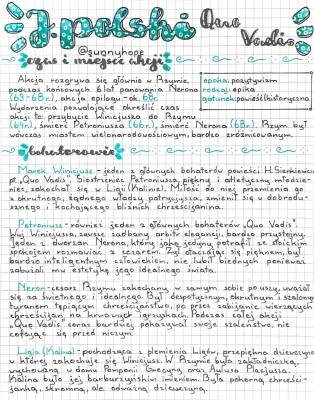 J. polski Quo Vadis
@sunnyhope
czas i miejsce akcji
Akcja rozgrywa się głównie w Rzymie
podczas końcowych 5 lat panowania Nerona
(63-68r.), akcja epilogu - ok. 68r.
Wydarzenia pozwalające określić czas
akcji to: przybycie Winicjusza do Rzymu
(64r.), śmierć Petroniusza (66r.), śmierć Nerona (68r.). Rzym był
wówczas miastem wielonarodowościowym, bardzo zróżnicowanym.
epoka: pozytywizm
rodzaj: epika
gatunek: powieść historyczna
bohaterowie
Marek Winicjusz - jeden z głównych bohaterów powieści H. Sienkiewicza
pt. „Quo Vadis". Siostrzeniec Petroniusza, piękny i atletyczny młodzie-
niec, zakochał się w Ligii (Kalinie). Miłość do niej przemienia go
z okrutnego, żądnego władzy patrycjusza, zmienił się w dobrodu-
sznego i kochającego bliźnich chrześcijanina.
Petroniusz - również jeden z głównych bohaterów „Quo Vadis".
Wuj Winicjusza, zawsze zadbany arbiter elegancji, bardzo przystojny.
Jeden z dworzan Nerona, który jako jedyny potrafił ze stoickim
spokojem rozmawiać z cezarem. Żył otaczając się pięknem, był
bardzo inteligentnym człowiekiem, nie lubił biednych ponieważ
zaburzali mu estetykę jego idealnego świata.
Neron - cesarz Rzymu zakochany w samym sobie po uszy, uważał
się za świetnego i idealnego. Był despotycznym, okrutnym i szalonym
tyranem tępiącym chrześcijaństwo, po przez zabijanie wierzących
chrześcijan na krwawych igrzyskach. Podczas całej akcji
„Quo Vadis" coraz bardziej pokazywał swoje szaleństwo, nie
cofając się przed niczym.
Ligia (Kalina) - pochodząca z plemienia Ligów, przepiękna dziewczyna
w której zakochuje się Winicjusz. W Rzymie była zakładniczką,
wychowaną w domu Pomponii Grecyny oraz Aulusa Placjusza.
Kalina było jej barbarzyńskim imieniem. Była pokorną chrześci-
janką, skromną, ale odważną dziewczyną.